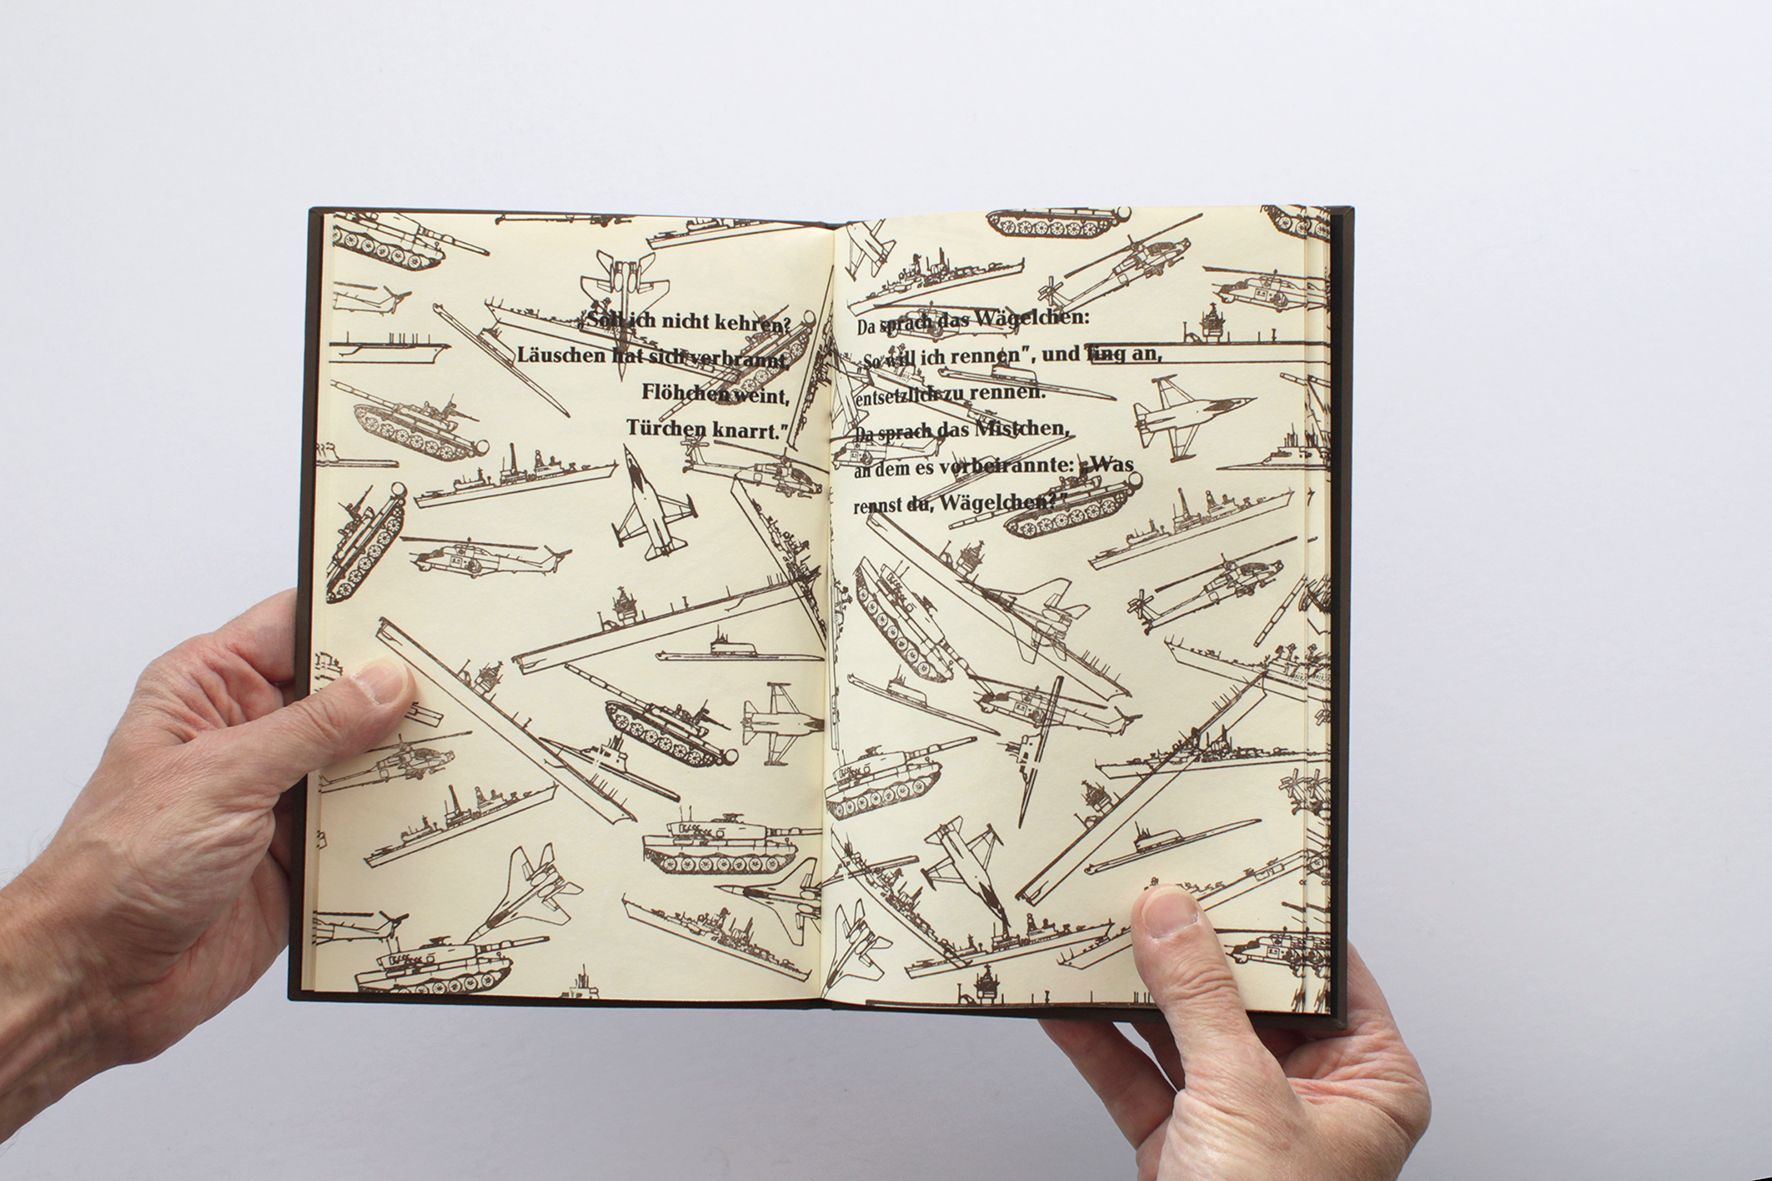 „Soll ich nicht kehren?
Läuschen hat sich verbrannt,
Flöhchen weint,
Türchen knarrt.”
Da sprach das Wägelchen:
„So will ich rennen”, und fing an,
entsetzlich zu rennen.
Da sprach das Mistchen,
an dem es vorbeirannte: „Was
rennst du, Wägelchen?”